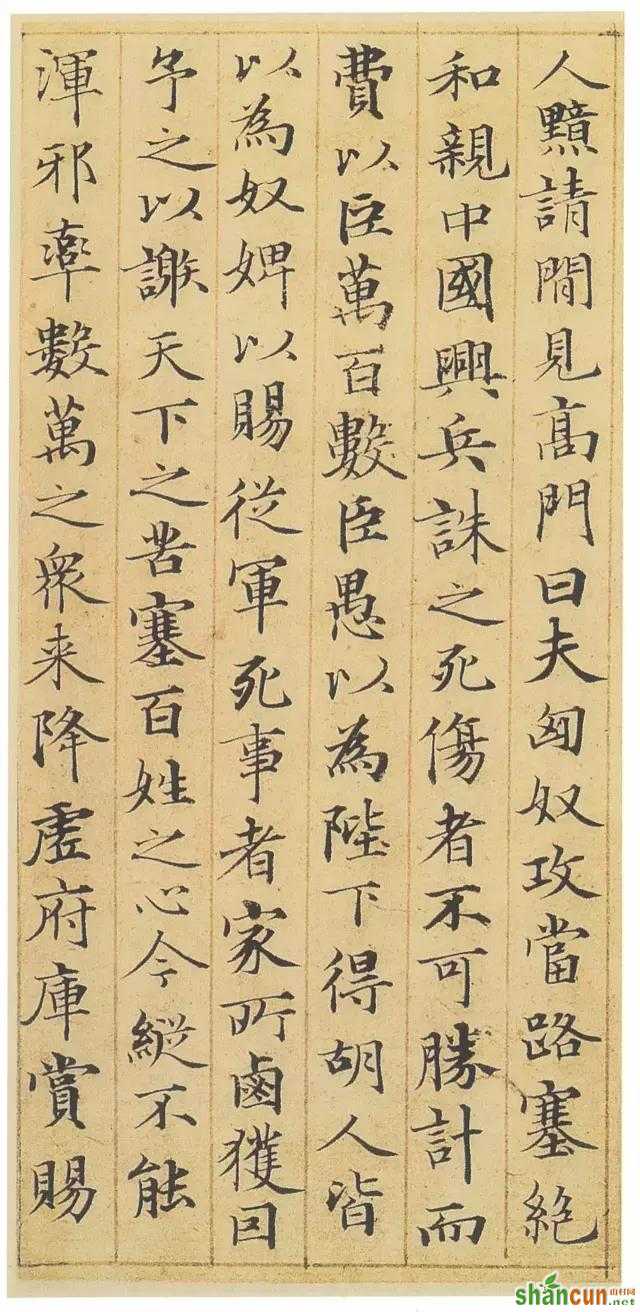 人黯請間見高門曰夫匈奴攻當路塞絕
和親中國興兵誅之死傷者不可勝計而
費以臣萬百數臣愚以為陛下得胡人皆
以為奴婢以賜從軍死事者家所鹵獲因
予之以謝天下之苦塞百姓之心今縱不能
渾邪率數萬之眾来降虛府庫賞賜
shancun
山村网
.net